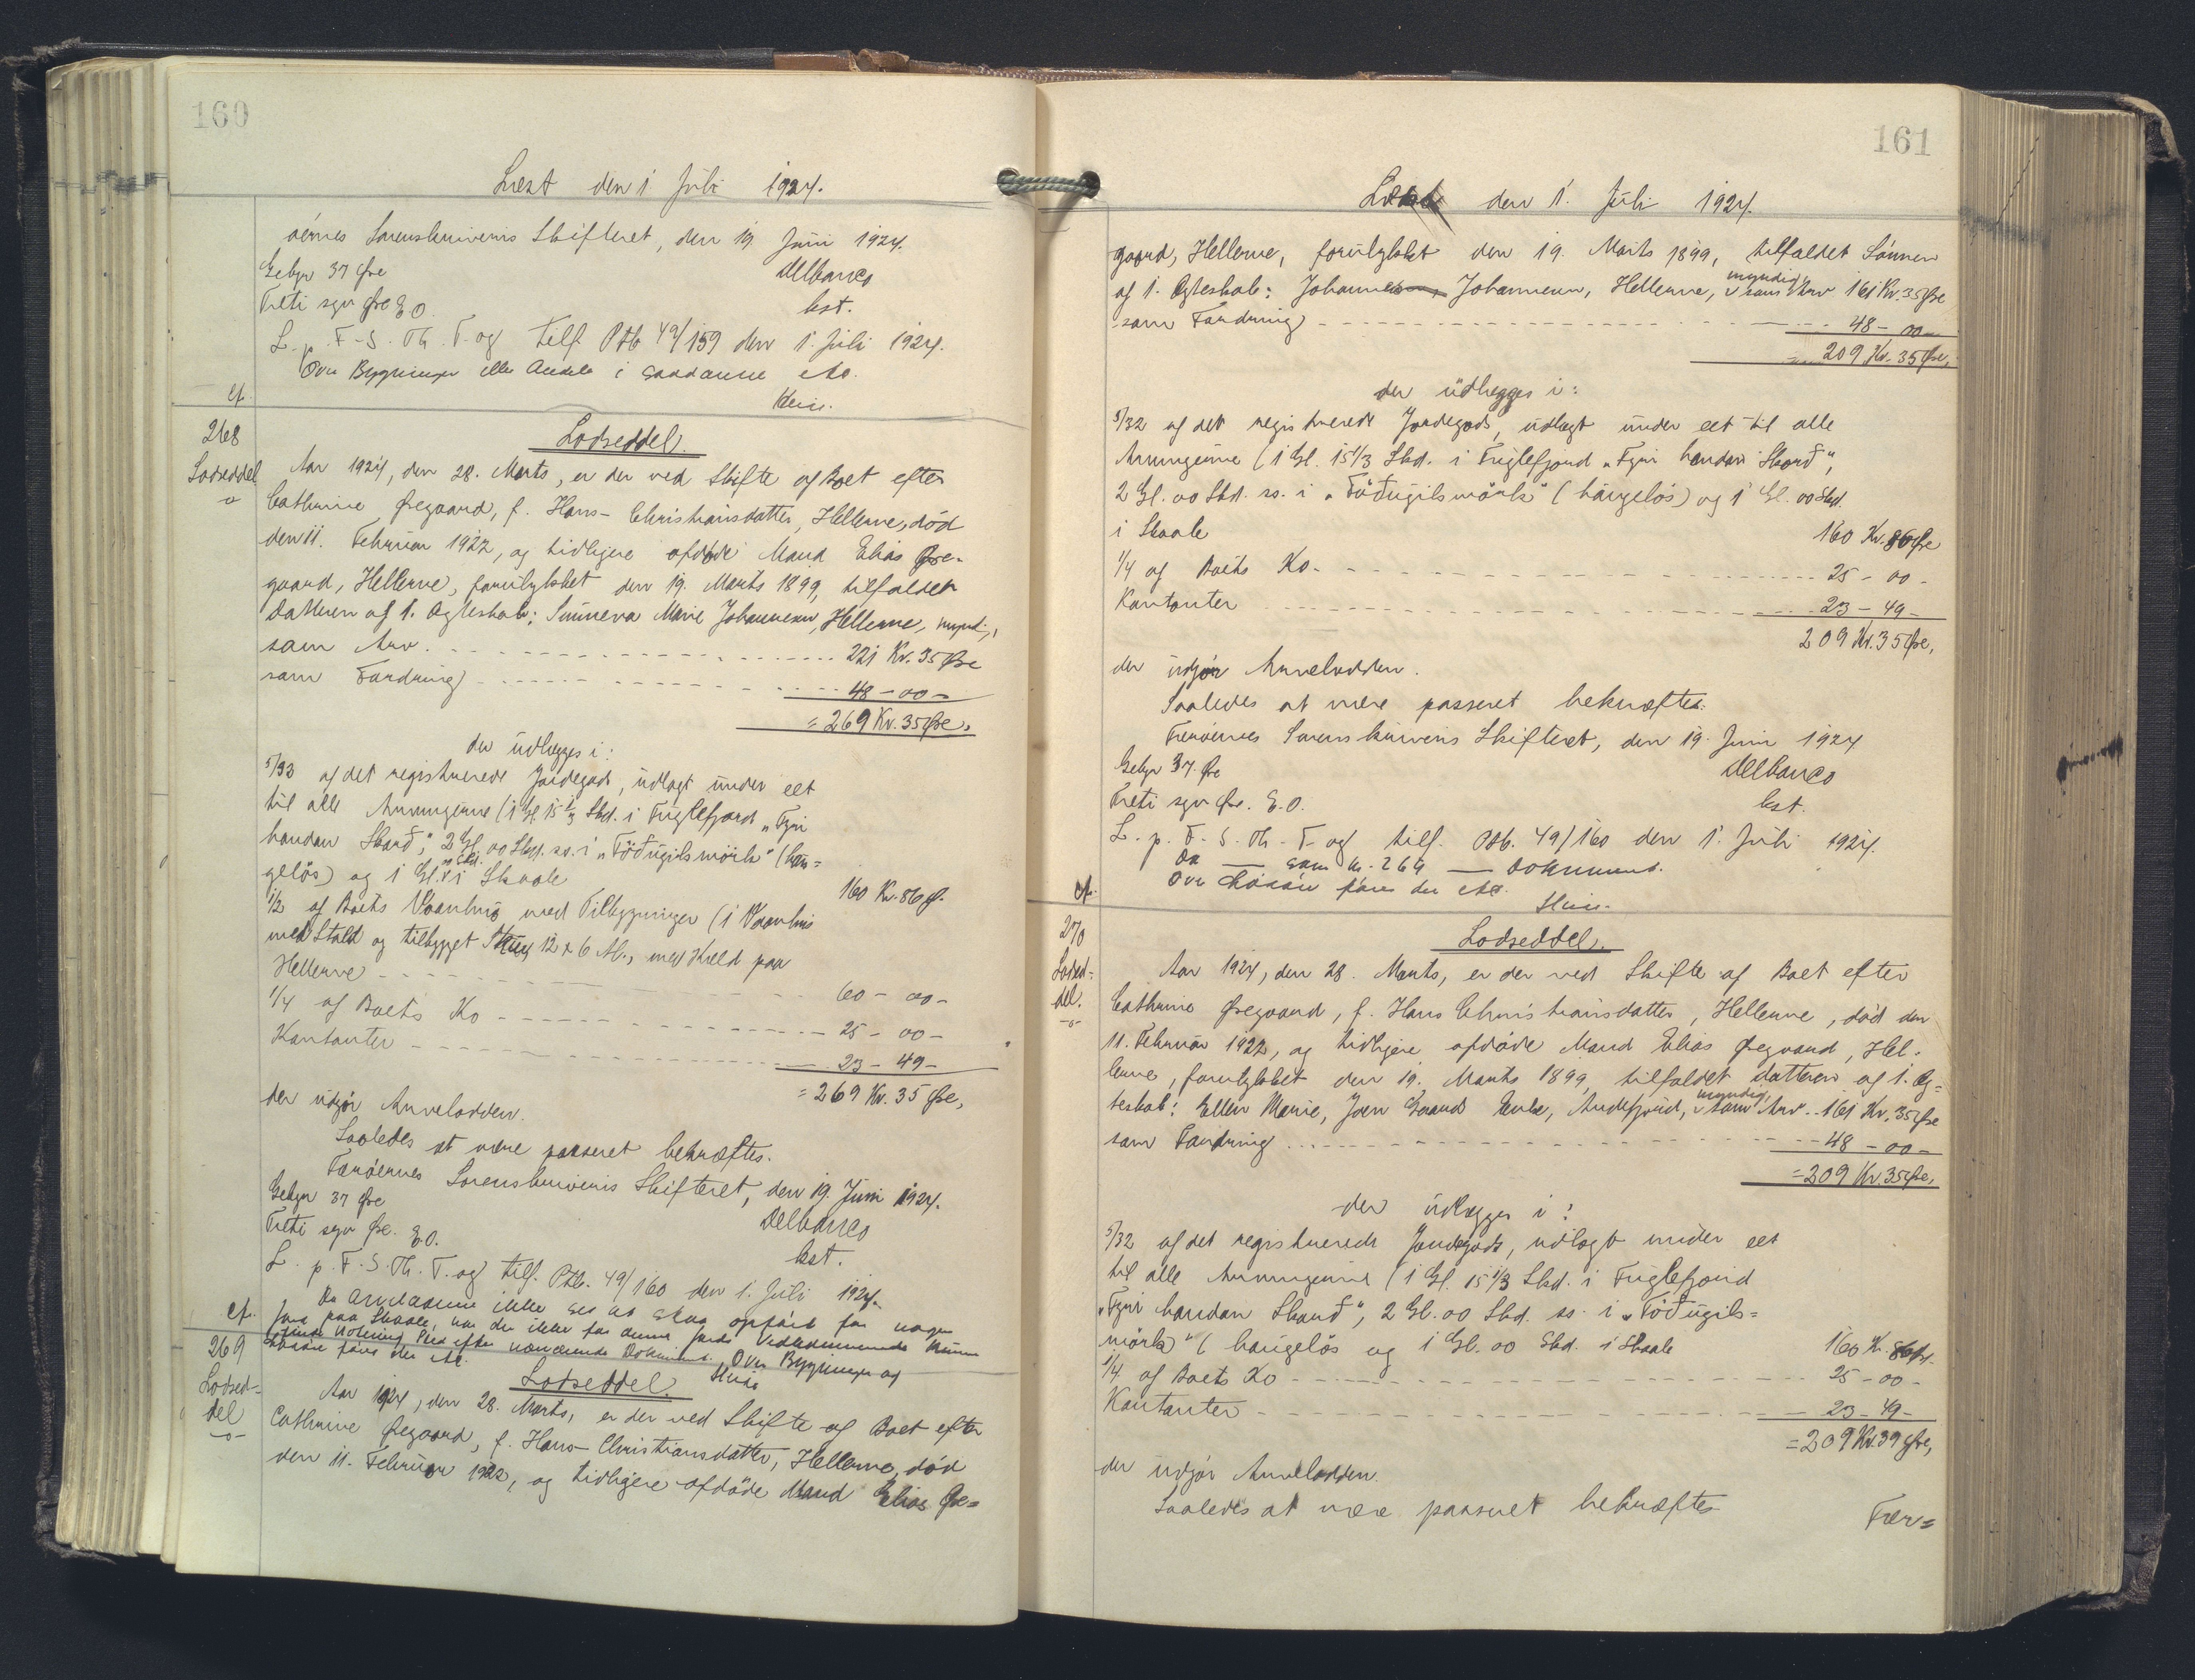 160
Læst den 1 Juli 1924.
øernes Sorenskriveris Skifteret, den 19 Juni 1924.
Gebyr 37 Øre
Delbanco
Treti syv Øre E.O.
kst.
L. p. F. S. Th. T. og tilf. Ptb 49/159 den 1. Juli 1924.
Over Bygninger eller Andele i saadanne etc.
cf.
268
Lodseddel
Lodseddel.
Aar 1924, den 28. Marts, er der ved Skifte af Boet efter
Cathrine Øregaard, f. Hans-Christiansdatter, Hellerne, død
den 11. Februar 1922, og tidligere afdøde Mand Elias Øre-
gaard, Hellerne, forulykket den 19. Marts 1899, tilfaldet
Datteren af 1. Ægteskab: Sunneva Marie Johannesen, Hellerne, myndig,
som Arv. 221 Kr. 35 Øre
som Fordring 48 - 00 -
= 269 Kr. 35 Øre,
der udlægges i:
5/32 af det registrerede Jordegods, udlagt under eet
til alle Arvingerne (1 Gl. 15 1/3 Skd. i Fuglefjord "Fyri
handan Skarð", 2 Gl. 00 Skd. ss. i "Töðugilsmörk" (hau-
gelös) og 1 Gl. 00 Skd. i Skaale 160 Kr. 86 Ø.
1/2 af Boets Vaanhus med Tilbygninger (1 Vaanhus
med Stald og tilbygget 12 x 6 Al., med Kæld paa
Hellerne 60 - 00 -
1/4 af Boets Ko 25 - 00 -
Kontanter 23 - 49 -
= 269 Kr. 35 Øre,
der udgør Arvelodden.
Saaledes at være passeret bekræftes.
Færøernes Sorenskriveris Skifteret, den 19. Juni 1924.
Gebyr 37 Øre
Delbanco
Treti syv Øre. E.O.
kst.
L. p. F. S. Th. T. og tilf. Ptb. 49/160 den 1. Juli 1924.
Da Arveladerne ikke ses at skaa opført for nogen
cf. Jord paa Skaale, kan der ikke for denne Jords Vedkommende kunne
finde Notering Sted efter nærværende Dokument. Over Bygninger og
etc.
269
Lodsed-
del
Lodseddel.
Aar 1924, den 28. Marts, er der ved Skifte af Boet efter
Cathrine Øregaard, f. Hans-Christiansdatter, Hellerne, død
den 11. Februar 1922, og tidligere afdøde Mand Elias Øre=
161
Læst den 1. Juli 1924.
gaard, Hellerne, forulykket den 19. Marts 1899, tilfaldet Sønnen
af 1. Ægteskab: Johannes Johannesen, Hellerne, myndig, som Arv 161 Kr. 35 Øre
som Fordring 48 - 00 -
= 209 Kr. 35 Øre,
der udlægges i:
5/32 af det registrerede Jordegods, udlagt under eet til alle
Arvingerne (1 Gl. 15 1/3 Skd. i Fuglefjord "Fyri handan Skarð",
2 Gl. 00 Skd. ss. i "Töðugilsmörk" (haugelös) og 1 Gl. 00 Skd.
i Skaale 160 Kr. 86 Øre
1/4 af Boets Ko 25 - 00 -
Kontanter 23 - 49 -
209 Kr. 35 Øre,
der udgør Arvelodden.
Saaledes at være passeret bekræftes.
Færøernes Sorenskriveris Skifteret, den 19. Juni 1924
Gebyr 37 Øre
Delbanco
Treti syv Øre. E.O.
kst.
L. p. F. S. Th. T. og tilf. Ptb. 49/160 den 1. Juli 1924.
Da — som Nr. 269 — Dokument.
cf. Over etc.
270
Lodsed-
del.
Lodseddel.
Aar 1924, den 28. Marts, er der ved Skifte af Boet efter
Cathrine Øregaard, f. Hans Christiansdatter, Hellerne, død den
11. Februar 1922, og tidligere afdøde Mand Elias Øregaard, Hel-
lerne, forulykket den 19. Marts 1899, tilfaldet Datteren af 1. Æg-
teskab: Ellen Marie, Enke, Andefjord, myndig, som Arv 161 Kr. 35 Øre
som Fordring 48 - 00 -
= 209 Kr. 35 Øre,
der udlægges i:
5/32 af det registrerede Jordegods, udlagt under eet
til alle Arvingerne (1 Gl. 15 1/3 Skd. i Fuglefjord
"Fyri handan Skarð", 2 Gl. 00 Skd. ss. i "Töðugils=
mörk" (haugelös og 1 Gl. 00 Skd. i Skaale 160 Kr. 86 Ø.
1/4 af Boets Ko 25 - 00 -
Kontanter 23 - 49 -
= 209 Kr. 39 Øre,
der udgør Arvelodden.
Saaledes at være passeret bekræftes
Fær=